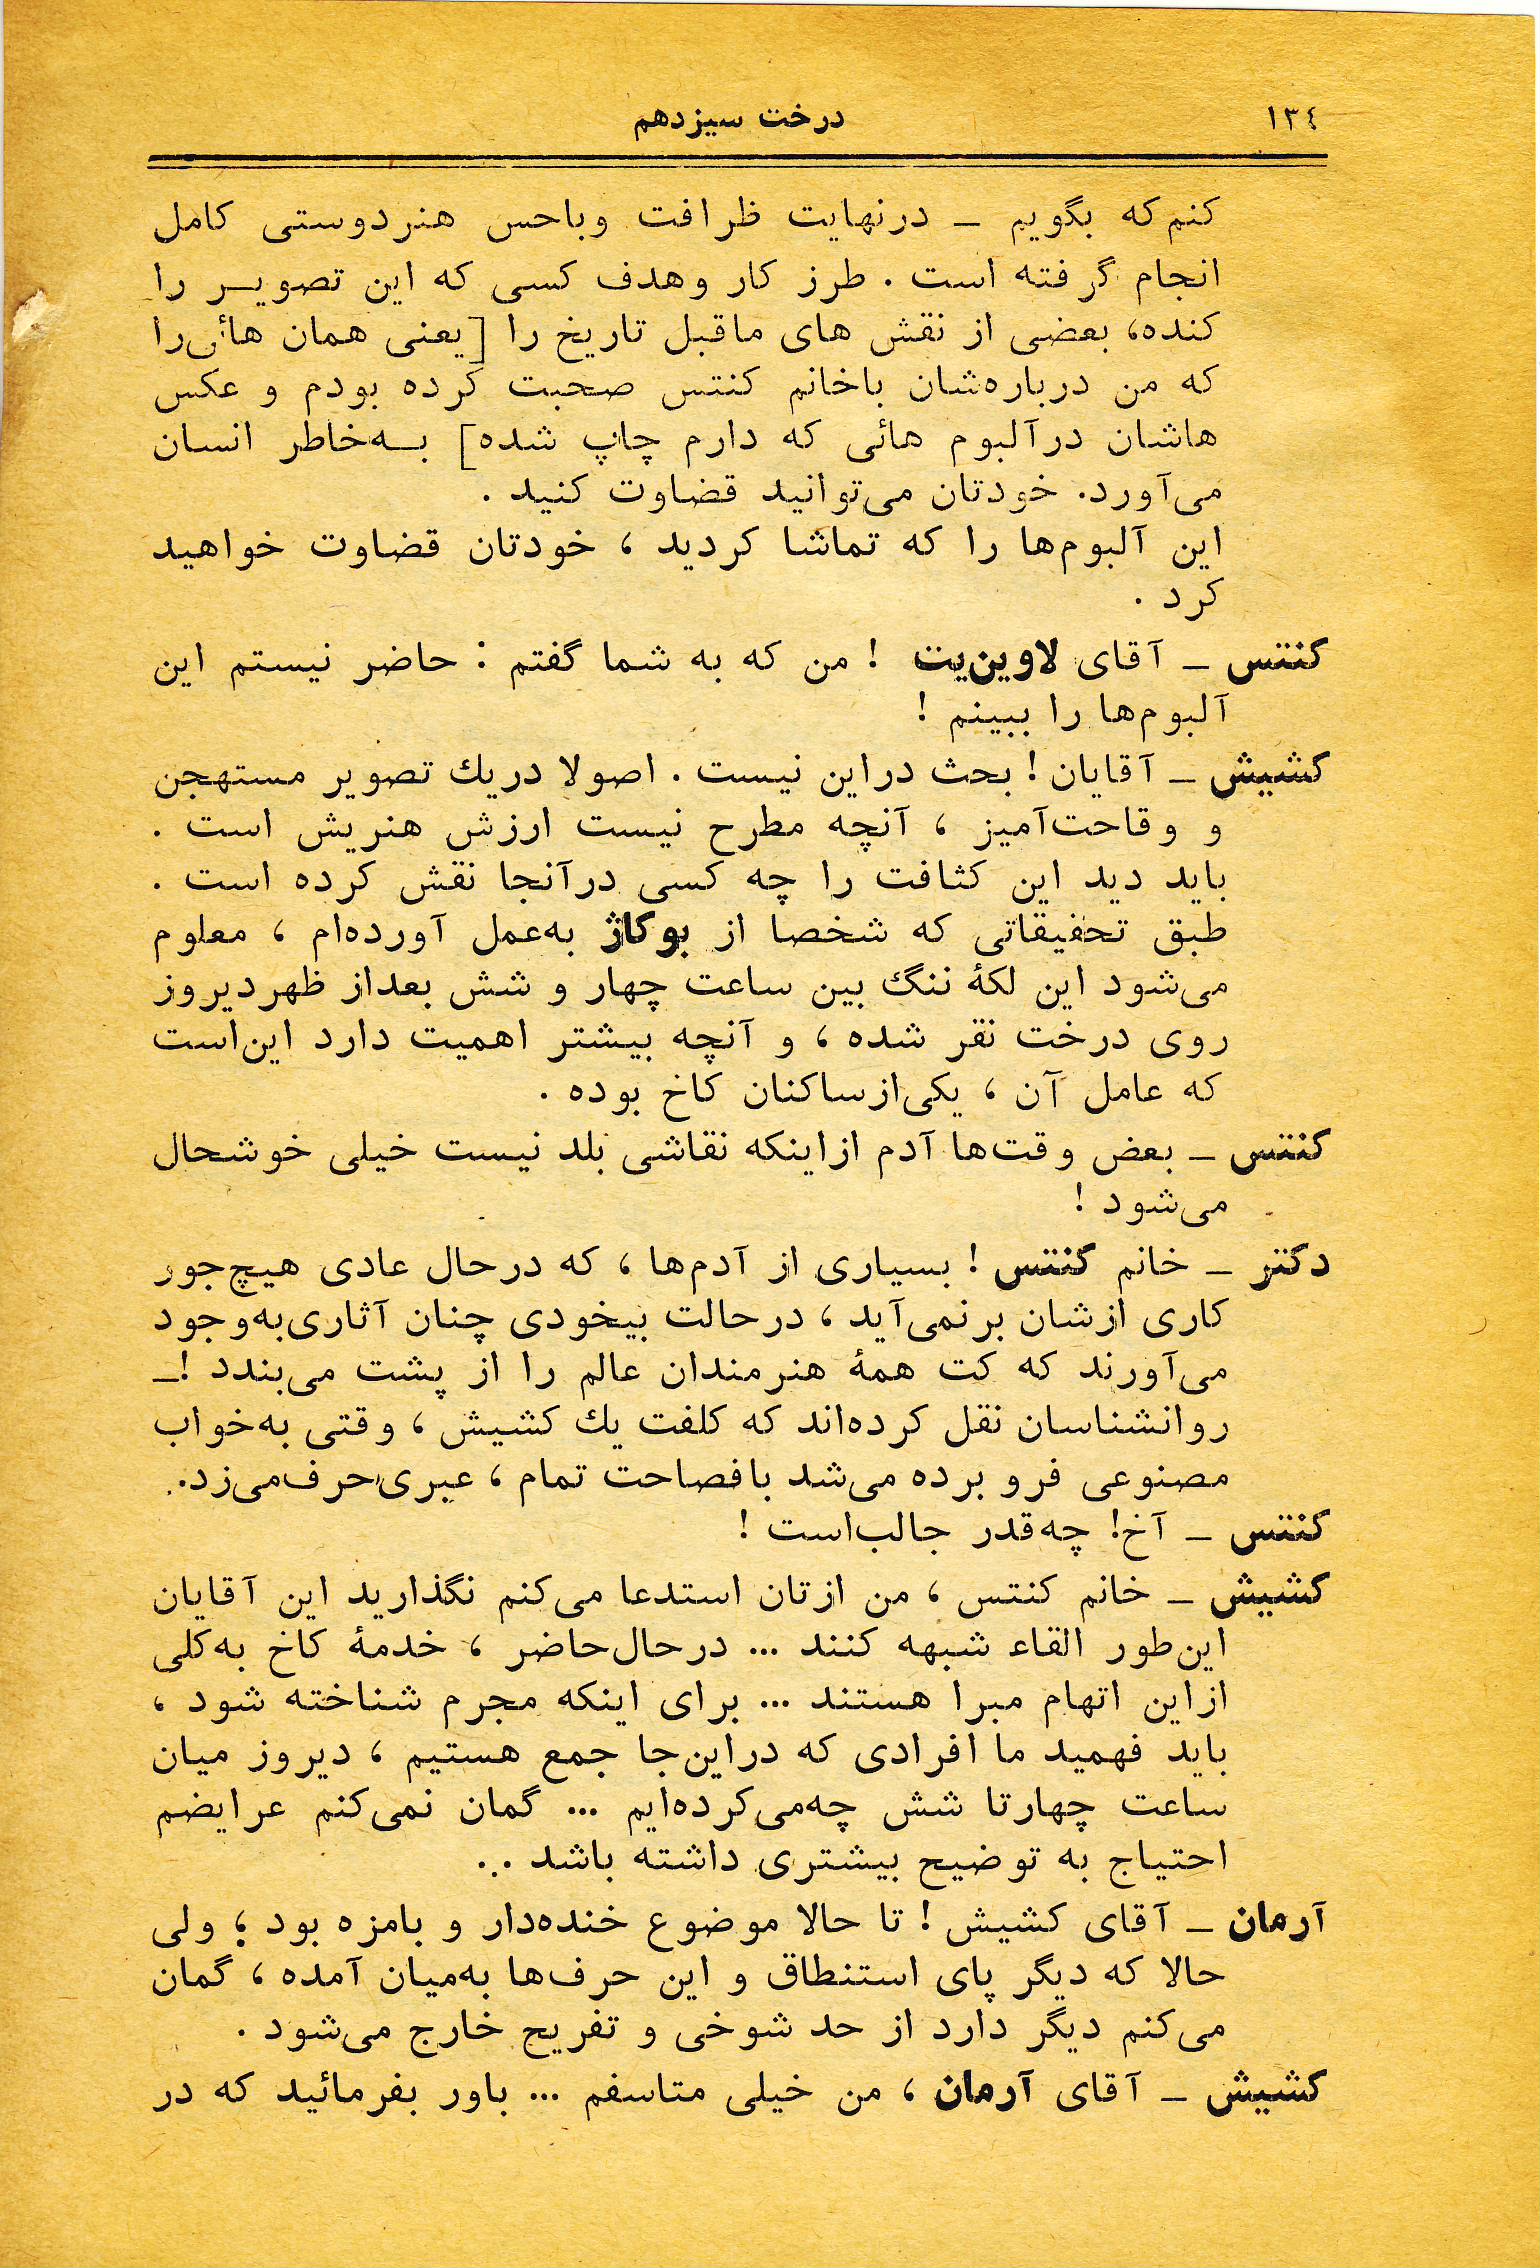 ۱۳٤
درخت سیزدهم
کنم که بگویم ــ درنهایت ظرافت وباحس هنردوستی کامل
انجام گرفته است . طرز کار وهدف کسی که این تصویـر را
کنده، بعضی از نقش های ماقبل تاریخ را [یعنی همان هائی را
که من درباره‌شان باخانم کنتس صحبت کرده بودم و عکس
هاشان درآلبوم هائی که دارم چاپ شده] بـه‌خاطر انسان
می‌آورد. خودتان می‌توانید قضاوت کنید .
این آلبوم‌ها را که تماشا کردید ، خودتان قضاوت خواهید
کرد .
کنتس ــ آقای لاوین‌یت ! من که به شما گفتم : حاضر نیستم این
آلبوم‌ها را ببینم !
کشیش ــ آقایان ! بحث دراین نیست . اصولا دریك تصویر مستهجن
و وقاحت‌آمیز ، آنچه مطرح نیست ارزش هنریش است .
باید دید این کثافت را چه کسی درآنجا نقش کرده است .
طبق تحقیقاتی که شخصا از بوکاژ به‌عمل آورده‌ام ، معلوم
می‌شود این لکهٔ ننگ بین ساعت چهار و شش بعداز ظهردیروز
روی درخت نقر شده ، و آنچه بیشتر اهمیت دارد این‌است
که عامل آن ، یکی‌ازساکنان کاخ بوده .
کنتس ــ بعض وقت‌ها آدم ازاینکه نقاشی بلد نیست خیلی خوشحال
می‌شود !
دکتر ــ خانم کنتس ! بسیاری از آدم‌ها ، که درحال عادی هیچ‌جور
کاری ازشان برنمی‌آید ، درحالت بیخودی چنان آثاری‌به‌وجود
می‌آورند که کت همهٔ هنرمندان عالم را از پشت می‌بندد !ــ
روانشناسان نقل کرده‌اند که کلفت یك کشیش ، وقتی به‌خواب
مصنوعی فرو برده می‌شد بافصاحت تمام ، عبری‌حرف‌می‌زد.
کنتس ــ آخ! چه‌قدر جالب‌است !
کشیش ــ خانم کنتس ، من ازتان استدعا می‌کنم نگذارید این آقایان
این‌طور القاء شبهه کنند ... درحال‌حاضر ، خدمهٔ کاخ به‌کلی
ازاین اتهام مبرا هستند ... برای اینکه مجرم شناخته شود ،
باید فهمید ما افرادی که دراین‌جا جمع هستیم ، دیروز میان
ساعت چهارتا شش چه‌می‌کرده‌ایم ... گمان نمی‌کنم عرایضم
احتیاج به توضیح بیشتری داشته باشد ...
آرمان ــ آقای کشیش ! تا حالا موضوع خنده‌دار و بامزه بود ؛ ولی
حالا که دیگر پای استنطاق و این حرف‌ها به‌میان آمده ، گمان
می‌کنم دیگر دارد از حد شوخی و تفریح خارج می‌شود .
کشیش ــ آقای آرمان ، من خیلی متاسفم ... باور بفرمائید که در